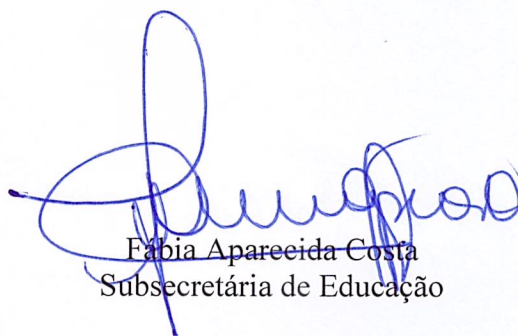 Fábia Aparecida Costa
Subsecretária de Educação